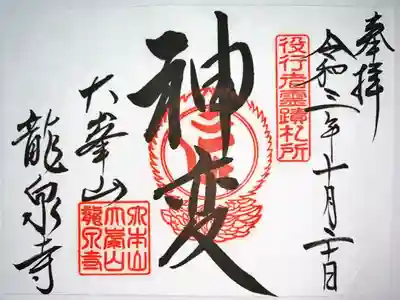 奉拝
令和三年十月二十日
役行者霊蹟札所
神変
大峯山
龍泉寺
水本山
大峯山
龍泉寺